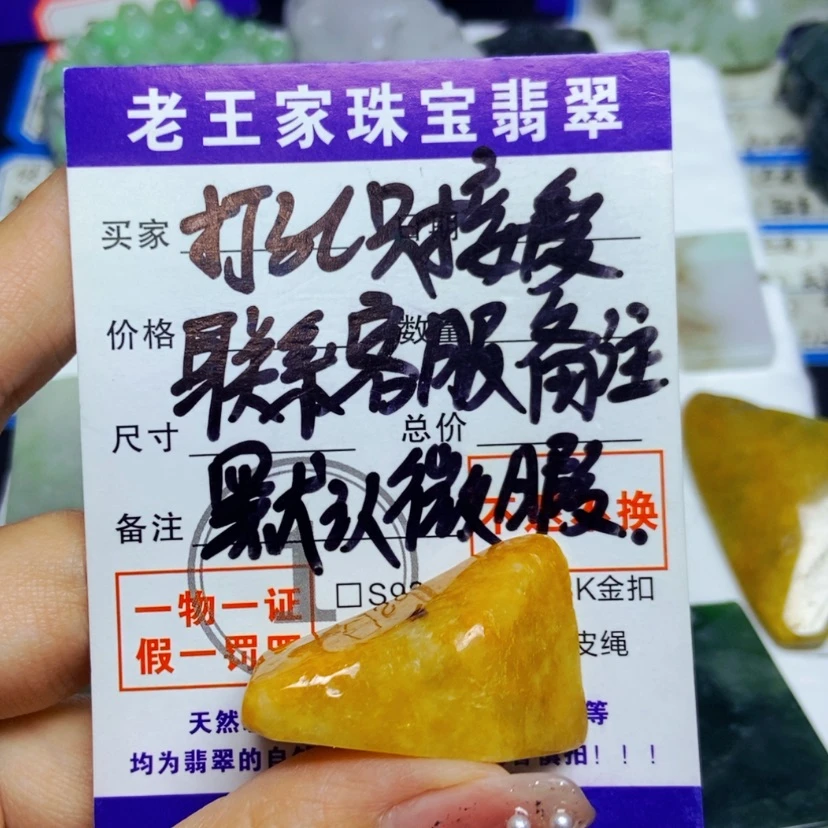 老王家珠宝翡翠
买家
打孔只接受
价格
联系客服备注
尺寸
总价
备注
默认微暇.
不退不换
一物一证
假一罚
□S9
K金扣
皮绳
天然
等
均为翡翠的自
慎拍！！！